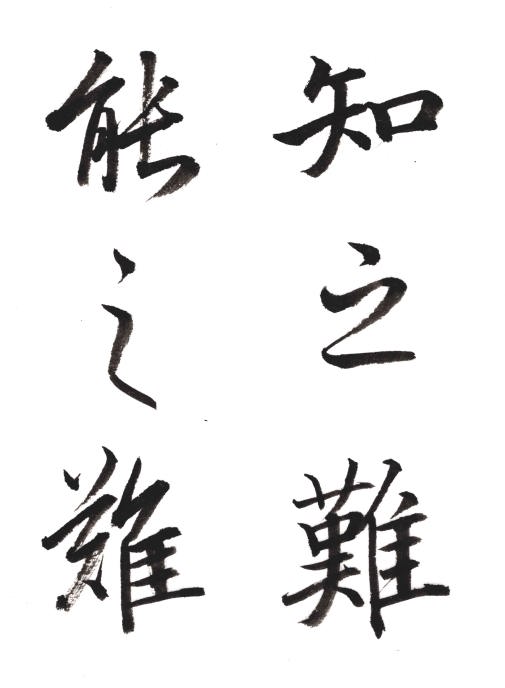 知之難
能之難